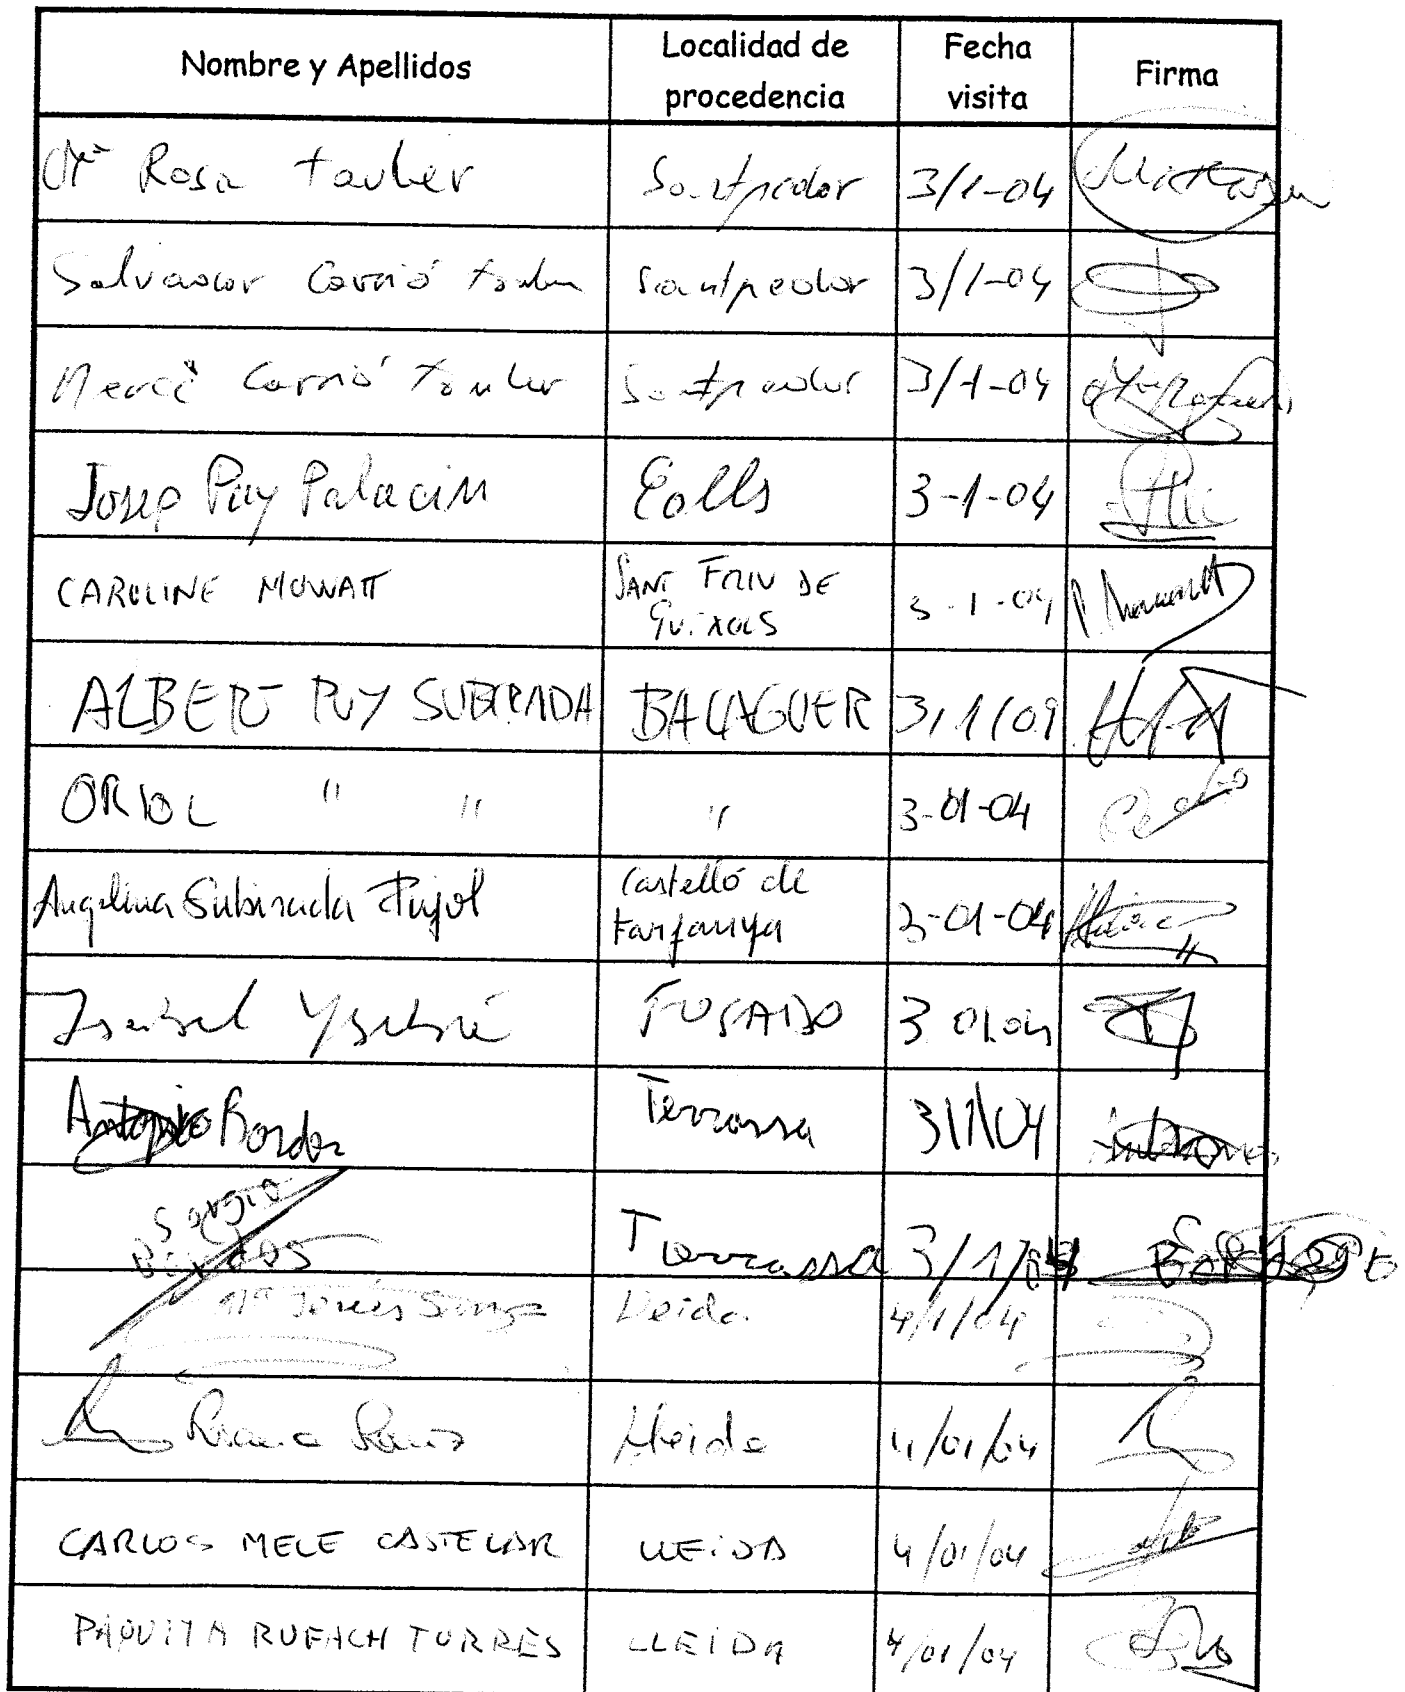 Nombre y Apellidos Localidad de procedencia Fecha visita Firma
Mª Rosa Tauler Santpedor 3/1-04
Salvador Carrió Tauler Santpedor 3/1-04
Mercè Carrió Tauler Santpedor 3/1-04
Josep Puy Palacin 3-1-04
CAROLINE MOWATT SANT FELIU DE GUIXOLS 3-1-04
ALBERT PUY SUBIRADA BALAGUER 3/1/04
ORIOL " " " 3-01-04
Angelina Subirada Pujol Castelló de Farfanya 3-01-04
Isabel 3 01.04
Antonio Bordas Terrassa 3/1/04
Sergio Bordas Terrassa 3/1/04
Mª Lleida 4/1/04
Lleida 4/01/04
CARLOS MELE CASTELAR LLEIDA 4/01/04
PAQUITA RUFACH TORRES LLEIDA 4/01/04